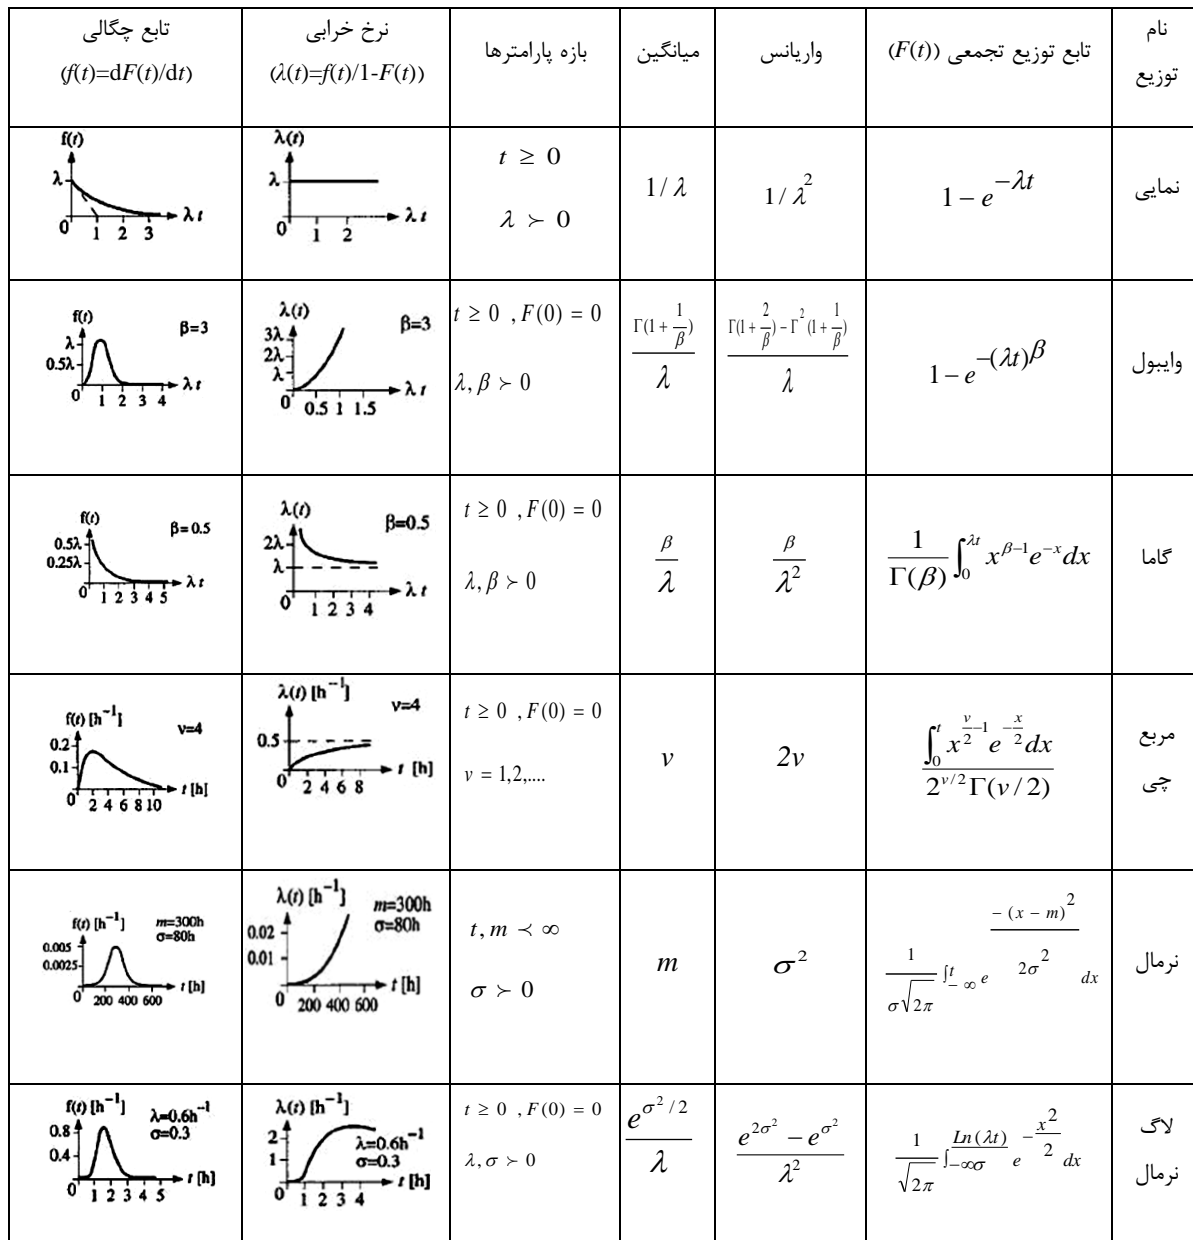 نام توزیع
تابع توزیع تجمعی (F(t))
واریانس
میانگین
بازه پارامترها
نرخ خرابی
(λ(t)=f(t)/1-F(t))
تابع چگالی
(f(t)=dF(t)/dt)
نمایی
1 − e^{−λt}
1/λ^2
1/λ
t ≥ 0
λ ≻ 0
λ(t)
λ
0 1 2 λ t
f(t)
λ
0 1 2 3 λ t
وایبول
1 − e^{−(λt)^β}
(Γ(1 + 2/β) − Γ^2(1 + 1/β)) / λ
Γ(1 + 1/β) / λ
t ≥ 0 , F(0) = 0
λ, β ≻ 0
λ(t) β=3
3λ
2λ
λ
0 0.5 1 1.5 λ t
f(t) β=3
λ
0.5λ
0 1 2 3 4 λ t
گاما
1/Γ(β) ∫_0^{λt} x^{β−1} e^{−x} dx
β/λ^2
β/λ
t ≥ 0 , F(0) = 0
λ, β ≻ 0
λ(t) β=0.5
2λ
λ
0 1 2 3 4 λ t
f(t) β=0.5
0.5λ
0.25λ
0 1 2 3 4 5 λ t
مربع چی
∫_0^t x^{v/2−1} e^{−x/2} dx / 2^{v/2} Γ(v/2)
2v
v
t ≥ 0 , F(0) = 0
v = 1,2,....
λ(t) [h^{−1}] ν=4
0.5
0 2 4 6 8 t [h]
f(t) [h^{−1}] ν=4
0.2
0.1
0 2 4 6 8 10 t [h]
نرمال
1/(σ√2π) ∫_{−∞}^t e^{−(x − m)^2 / 2σ^2} dx
σ^2
m
t, m ≺ ∞
σ ≻ 0
λ(t) [h^{−1}] m=300h
σ=80h
0.02
0.01
0 200 400 600 t [h]
f(t) [h^{−1}] m=300h
σ=80h
0.005
0.0025
0 200 400 600 t [h]
لاگ نرمال
1/√2π ∫_{−∞}^{Ln(λt)/σ} e^{−x^2/2} dx
(e^{2σ^2} − e^{σ^2}) / λ^2
e^{σ^2/2} / λ
t ≥ 0 , F(0) = 0
λ, σ ≻ 0
λ(t) [h^{−1}]
2
1
λ=0.6h^{−1}
σ=0.3
0 1 2 3 4 t [h]
f(t) [h^{−1}] λ=0.6h^{−1}
σ=0.3
0.8
0.4
0 1 2 3 4 5 t [h]